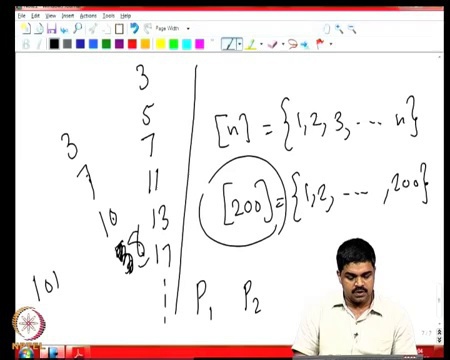 File Edit View Insert Actions Tools Help
Page Width
3
5
3 7
7 11
10 13
8 17
101
[n] = {1, 2, 3, ... n}
[200] = {1, 2, ..., 200}
P₁ P₂